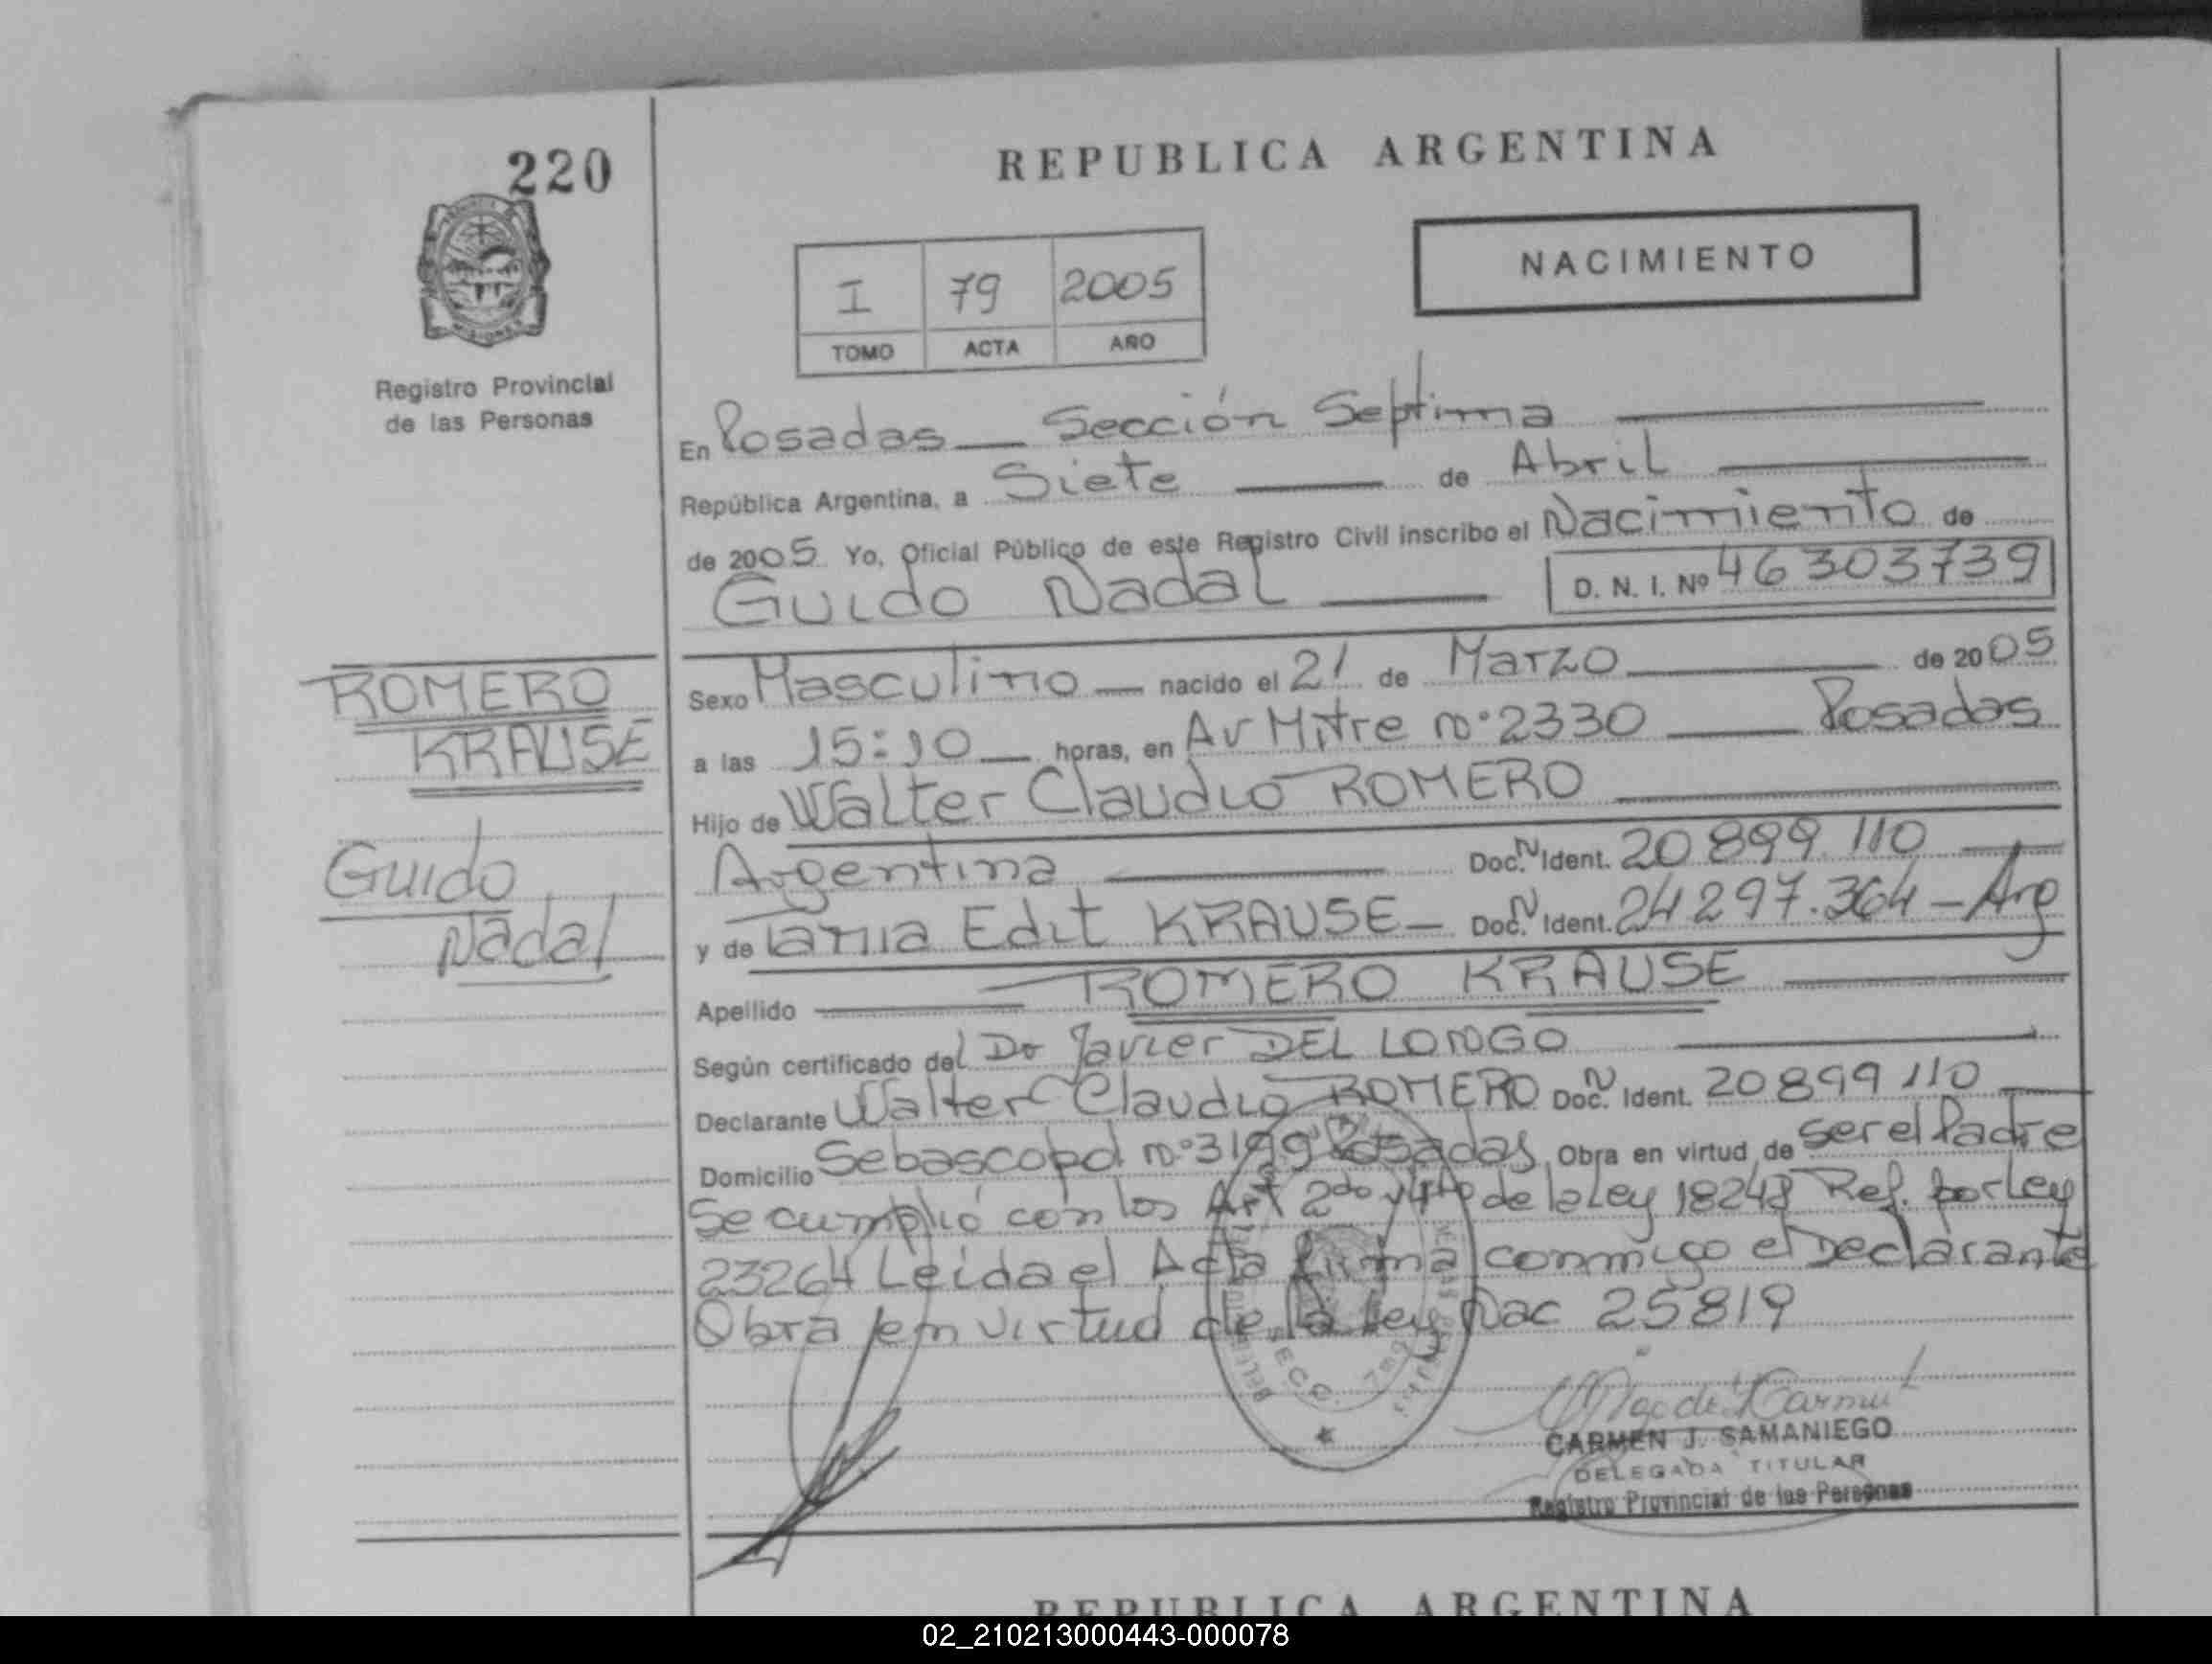 220
REPUBLICA ARGENTINA
NACIMIENTO
I 79 2005
TOMO ACTA AÑO
Registro Provincial
de las Personas
En Posadas — Sección Septima
República Argentina, a Siete de Abril
de 2005 Yo, Oficial Público de este Registro Civil inscribo el Nacimiento de
Guido Nadal D. N. I. Nº 46303739
ROMERO
KRAUSE
Guido
Nadal
Sexo Masculino — nacido el 21 de Marzo de 2005
a las 15:10 — horas, en Av Mitre nº 2330 Posadas
Hijo de Walter Claudio ROMERO
Argentina Doc. N Ident. 20 899. 110
y de Tania Edit KRAUSE — Doc. N Ident. 24 297.364 — Arg
Apellido ROMERO KRAUSE
Según certificado del Dr Javier DEL LONGO
Declarante Walter Claudio ROMERO Doc. N Ident. 20 899 110
Domicilio Sebascopol nº 3199 Posadas Obra en virtud de ser el Padre
Se cumplió con los Art 2do y 4to de la Ley 18248 Ref. por Ley
23264 Leida el Acta firma conmigo el Declarante
Obra en virtud de la Ley Nac 25819
CARMEN J. SAMANIEGO
DELEGADA TITULAR
Registro Provincial de las Personas
REPUBLICA ARGENTINA
02_210213000443-000078